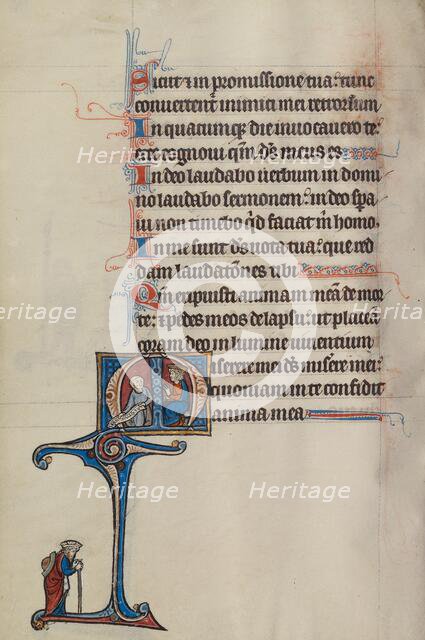 Sicut & in promissione tua: tunc
convertent̄ inimici mei retrorsum
In quacumq; die invocavero te:
ecce cognovi qm̄ ds̄ meus es
In deo laudabo verbum in domi
no laudabo sermonem: in deo spera
vi non timebo qd̄ faciat m̄ homo
In me sunt ds̄ vota tua: que red
dam laudatōnes tibi
Qm̄ eripuisti animam meā de mor
te: & pedes meos de lapsu: ut placeā
coram deo in lumine viventium
Miserere mei ds̄ miserere mei:
quoniam in te confidit
anima mea
Heritage
Heritage
Heritage
Heritage
Heritage
Heritage